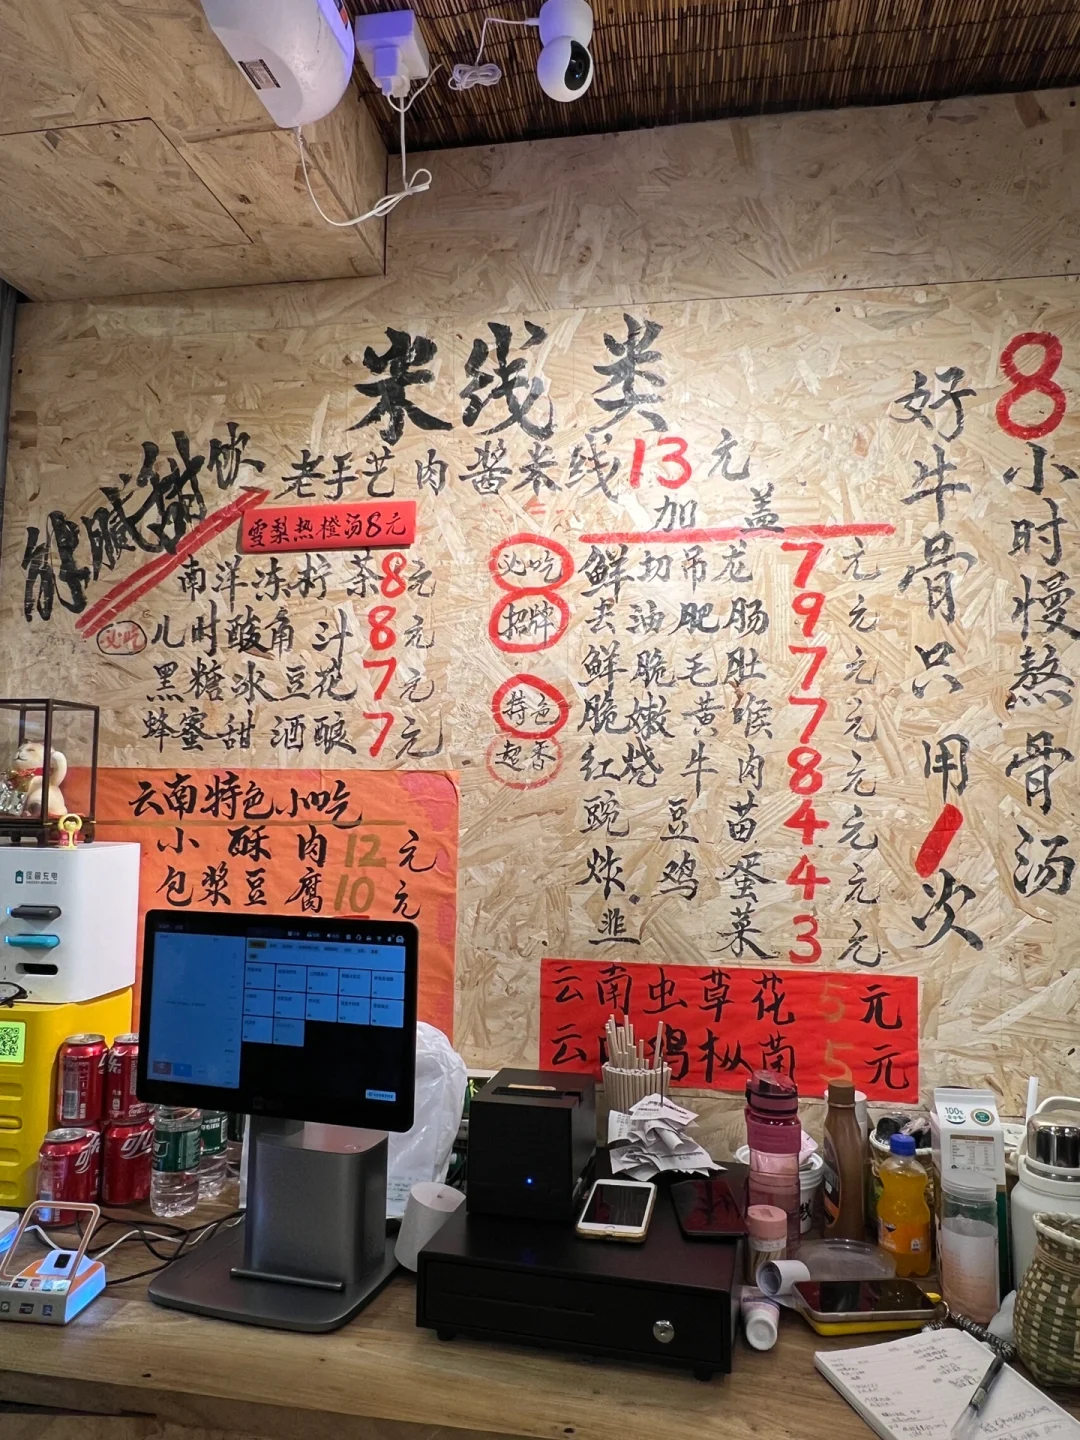 米线类
老手艺肉酱米线13元
加盖
必吃 鲜切吊龙 7元
招牌 去油肥肠 9元
鲜脆毛肚 7元
特色 脆嫩黄喉 7元
超香 红烧牛肉 8元
豌豆苗 4元
炸鸡蛋 4元
韭菜 3元
云南虫草花 5元
鸡枞菌 5元
解腻 饮
雪梨热橙汤8元
南洋冻柠茶8元
必吃 儿时酸角汁 8元
黑糖冰豆花 7元
蜂蜜甜酒酿 7元
云南特色小吃
小酥肉12元
包浆豆腐10元
8小时慢熬骨汤
好牛骨只用1次
怪兽充电
100%